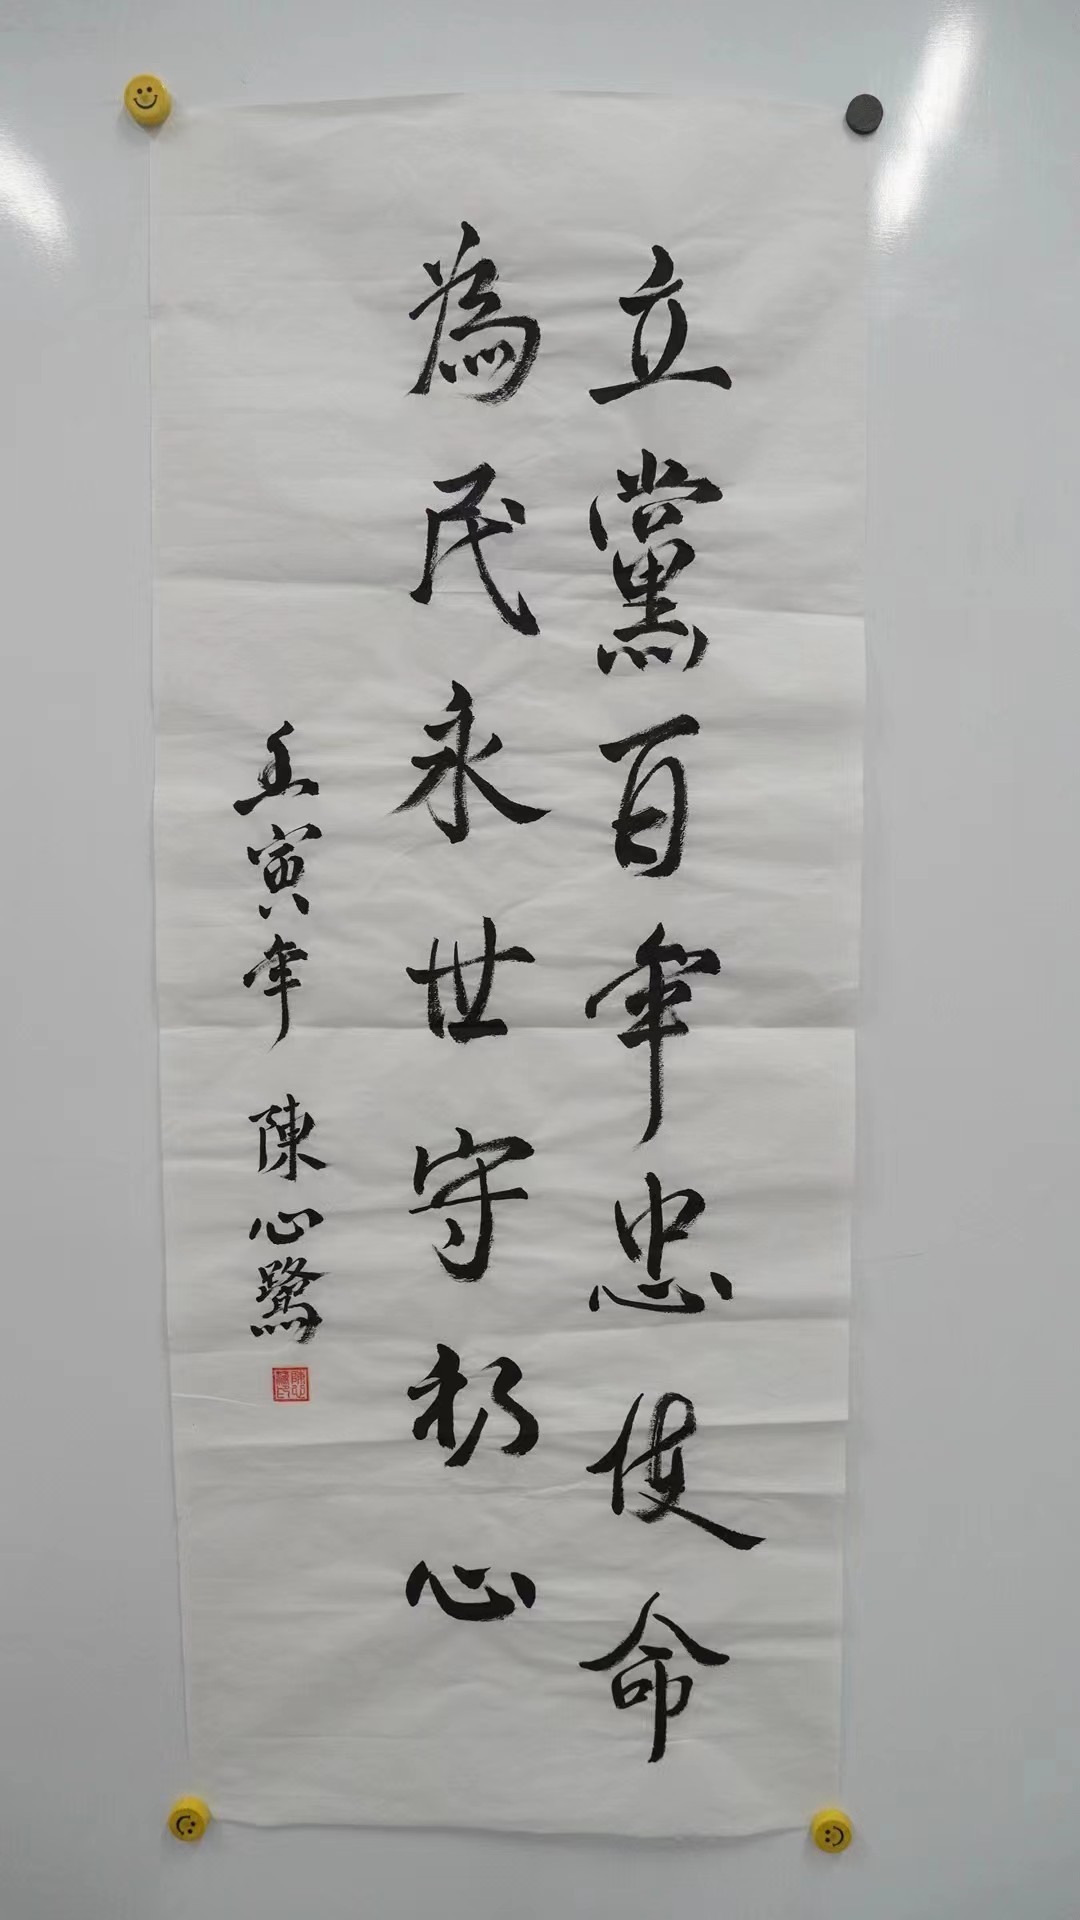 立黨百年忠使命
為民永世守初心
壬寅年 陳心鷺